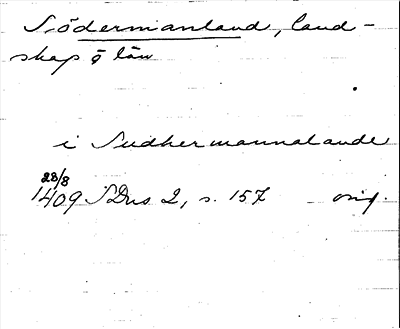 Södermanland, land-
skap o län
i Sudhermannalande
28/8
1409 SDns 2, s. 157 orig.